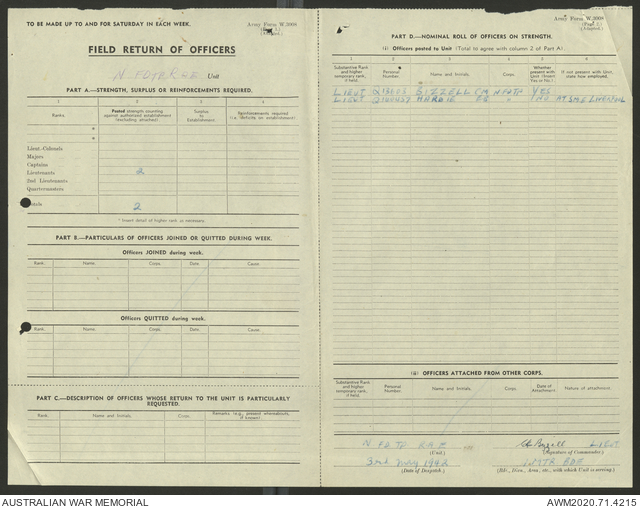 TO BE MADE UP TO AND FOR SATURDAY IN EACH WEEK.
Army Form W.3008
(Adapted.)
FIELD RETURN OF OFFICERS
Unit
PART A.—STRENGTH, SURPLUS OR REINFORCEMENTS REQUIRED.
1 2 3 4
Ranks. Posted strength counting against authorized establishment (excluding attached) Surplus to Establishment. Reinforcements required (i.e., deficits on establishment)
*
*
Lieut.-Colonels
Majors
Captains
Lieutenants 2
2nd Lieutenants
Quartermasters
2
* Insert detail of higher rank as necessary.
PART B.—PARTICULARS OF OFFICERS JOINED OR QUITTED DURING WEEK.
Officers JOINED during week.
Rank. Name. Corps. Date. Cause.
Officers QUITTED during week.
Rank. Name. Corps. Date. Cause.
PART C.—DESCRIPTION OF OFFICERS WHOSE RETURN TO THE UNIT IS PARTICULARLY REQUESTED.
Rank. Name and Initials. Corps. Remarks (e.g., present whereabouts, if known).
Army Form W.3008
(Page 2.)
(Adapted.)
PART D.—NOMINAL ROLL OF OFFICERS ON STRENGTH.
(i) Officers posted to Unit (Total to agree with column 2 of Part A).
Substantive Rank and higher temporary rank, if held. Personal Number. Name and Initials. Corps. Whether present with Unit (Insert Yes or No.) If not present with Unit, state how employed.
LIEUT BIZZELL CM YES
LIEUT HARDIE EG " NO AT SME LIVERPOOL
(ii) OFFICERS ATTACHED FROM OTHER CORPS.
Substantive Rank and higher temporary rank, if held. Personal Number. Name and Initials. Corps. Date of Attachment. Nature of attachment.
N. FOTP RAE LIEUT
(Unit.) (Signature of Commander)
3rd May 1942
(Date of Despatch.) (Bde., Divn., Area, etc., with which Unit is serving.)
AUSTRALIAN WAR MEMORIAL
AWM2020.71.4215